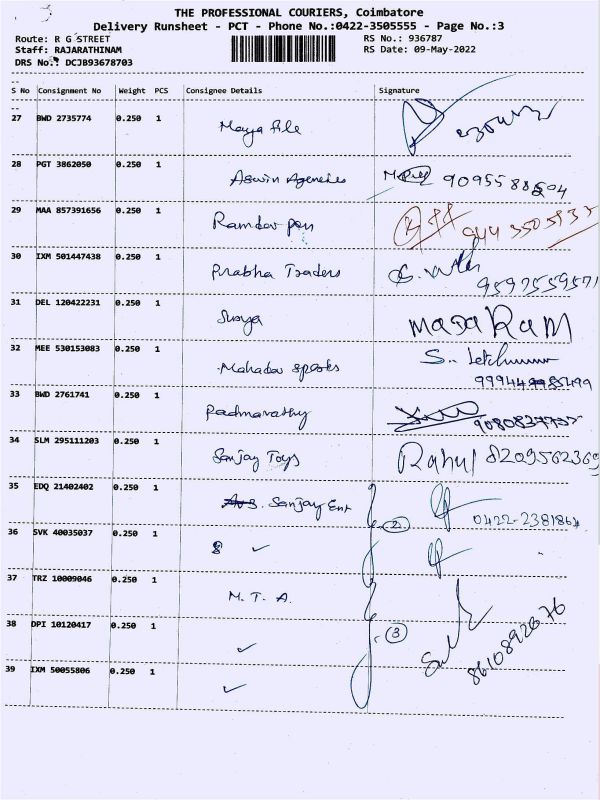 THE PROFESSIONAL COURIERS, Coimbatore
Delivery Runsheet - PCT - Phone No.:0422-3505555 - Page No.:3
Route: R G STREET
RS No.: 936787
Staff: RAJARATHINAM
RS Date: 09-May-2022
DRS No.: DCJB93678703
S No Consignment No Weight PCS Consignee Details Signature
27 BWD 2735774 0.250 1 Maya file
28 PGT 3862050 0.250 1 Aswin Agencies 9095588504
29 MAA 857391656 0.250 1 Ramdev pen
30 IXM 501447438 0.250 1 Prabha Traders 9597559571
31 DEL 120422231 0.250 1 Surya Masa RAM
32 MEE 530153083 0.250 1 Mahadev sports
33 BWD 2761741 0.250 1 Padmavathy
34 SLM 295111203 0.250 1 Sanjay Toys Rahul 8209562369
35 EDQ 21402402 0.250 1 Sanjay Ent 2 0422-2381864
36 SVK 40035037 0.250 1
37 TRZ 10009046 0.250 1 M. T. A.
38 DPI 10120417 0.250 1 3 8610892076
39 IXM 50055806 0.250 1